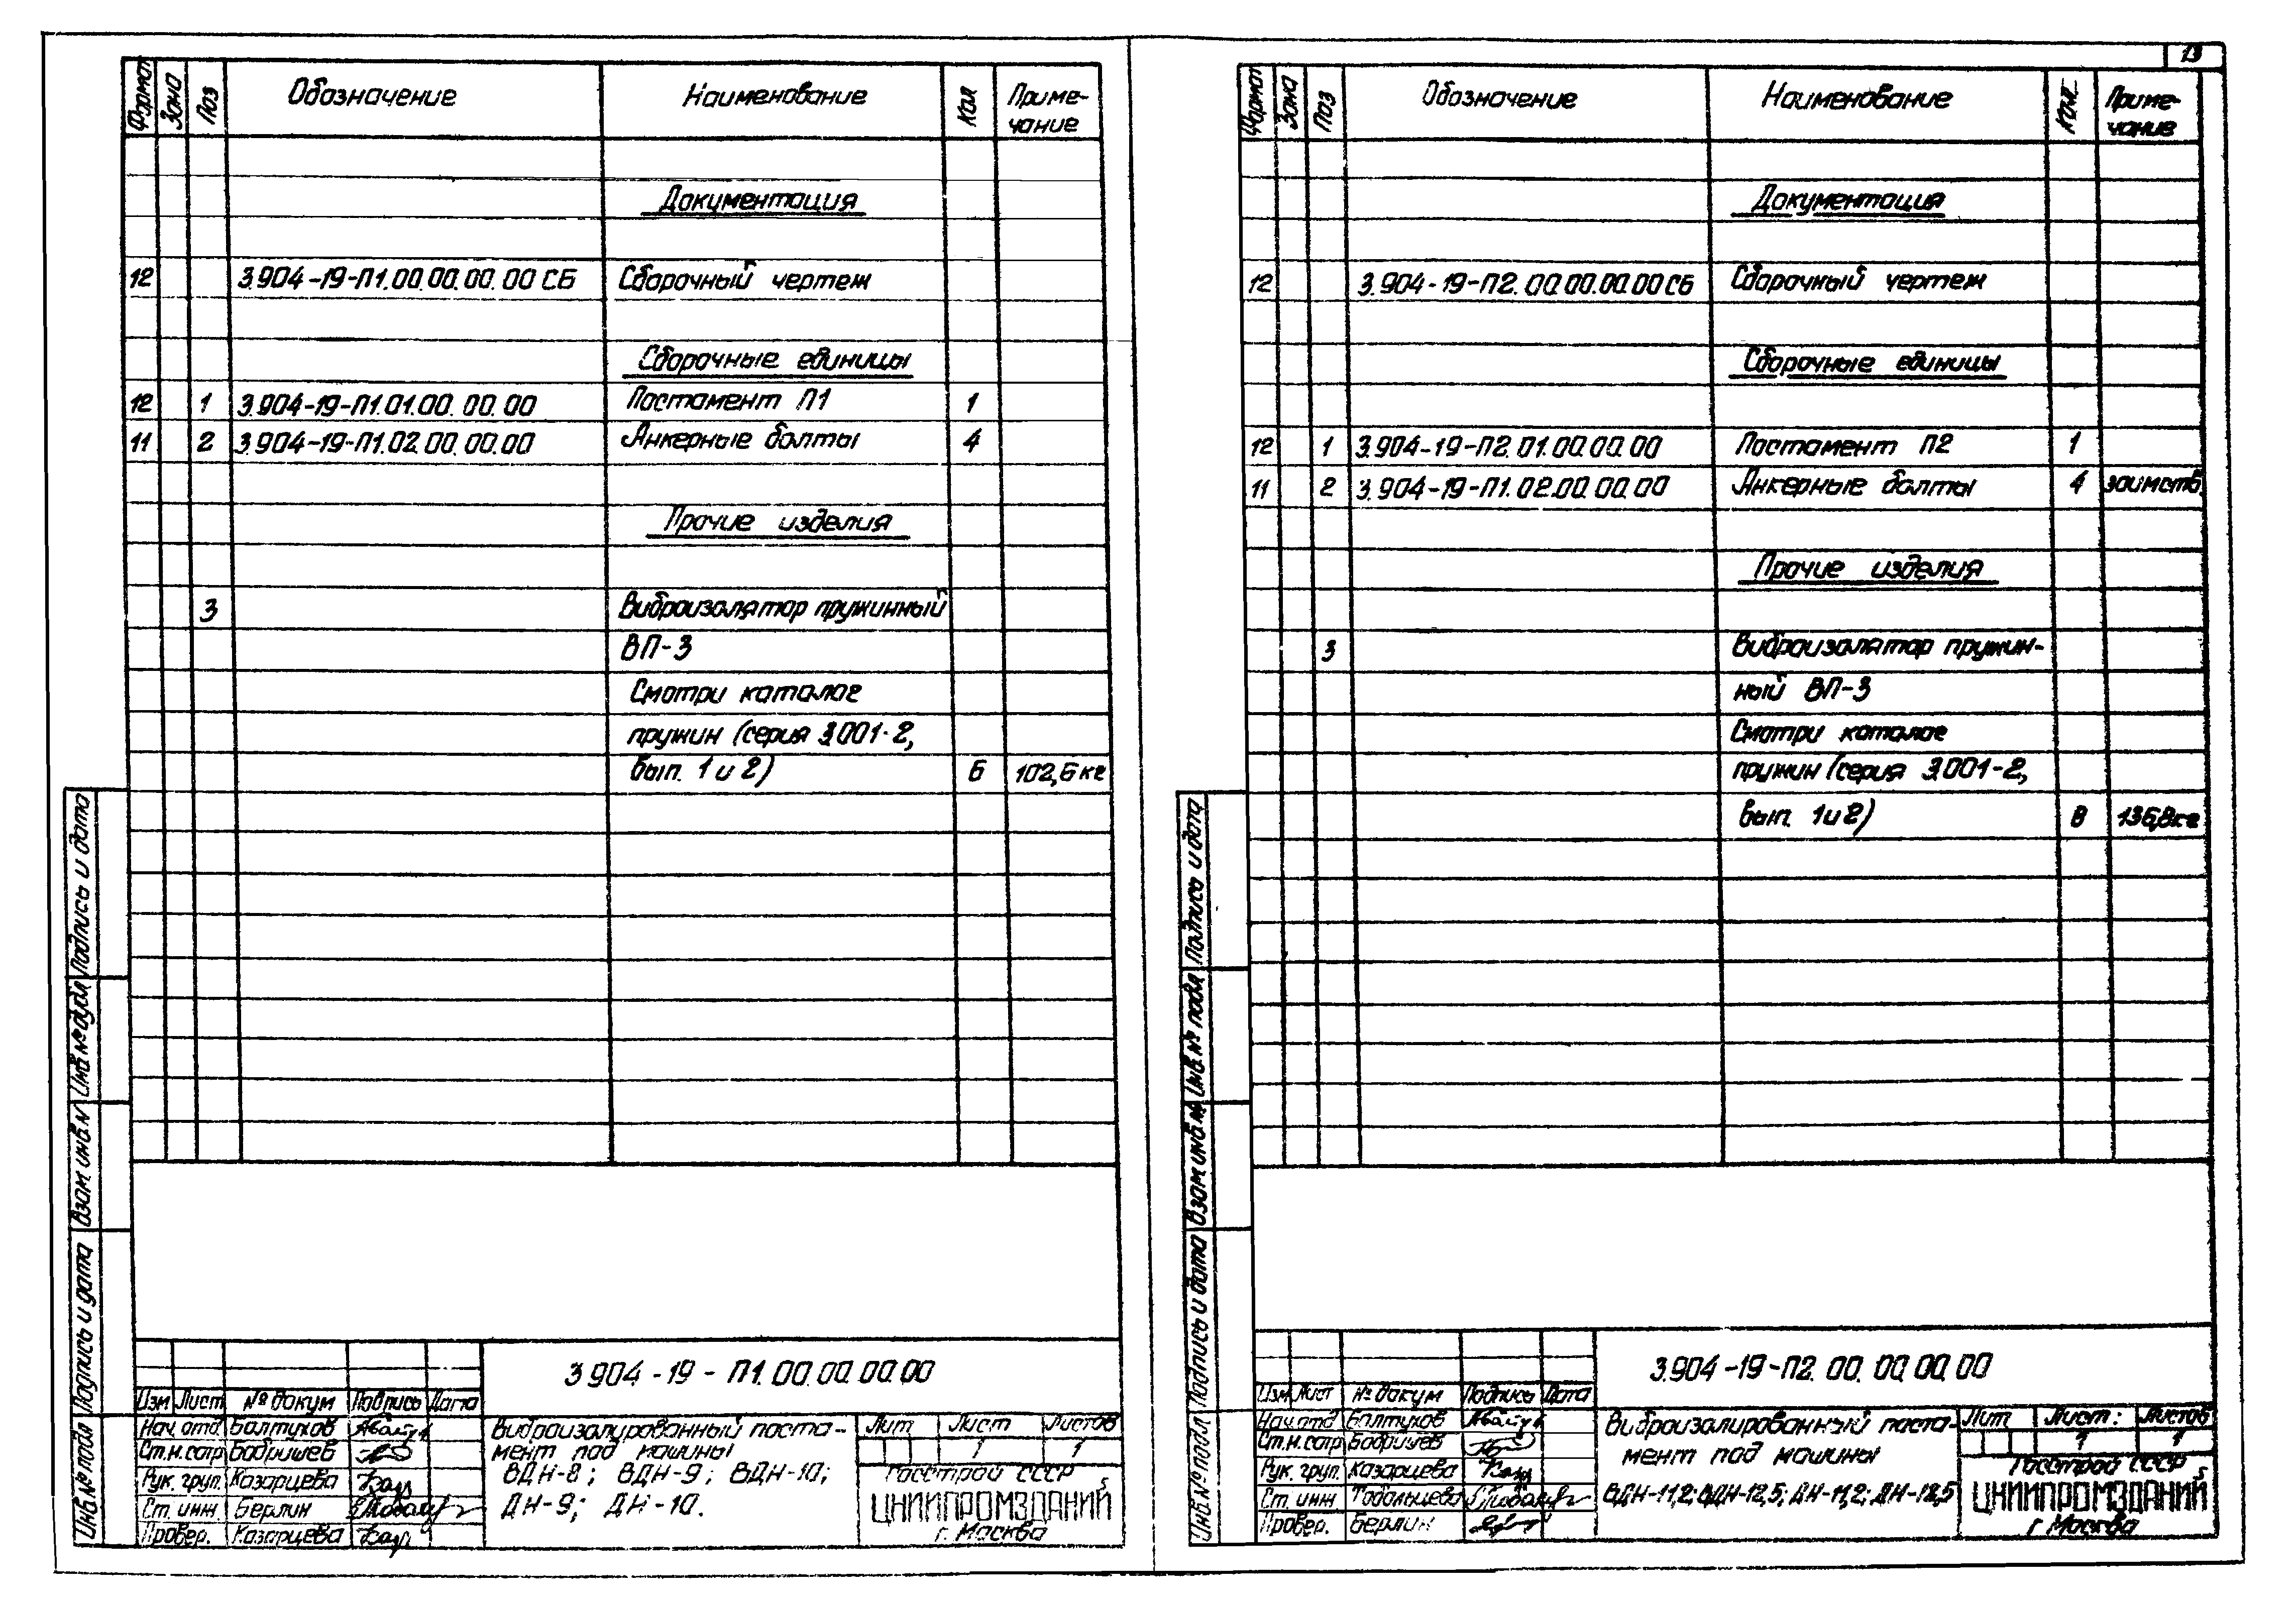 13
Формат Зона Поз Обозначение Наименование Кол Приме-
чание
Документация
12 3.904-19-П1.00.00.00.00 СБ Сборочный чертеж
Сборочные единицы
12 1 3.904-19-П1.01.00.00.00 Постамент П1 1
11 2 3.904-19-П1.02.00.00.00 Анкерные болты 4
Прочие изделия
3 Виброизолятор пружинный
ВП-3
Смотри каталог
пружин (серия 3.001-2,
вып. 1 и 2) 6 102,6 кг
Подпись и дата
Инв.№ дубл
Взам инв.№
Подпись и дата
Инв.№ подл
3.904-19-П1.00.00.00.00
Изм Лист № докум Подпись Дата
Нач. отд. Балтухов
Ст.н.сотр Бобришев
Рук. груп. Казарцева
Ст. инж Берлин
Провер. Казарцева
Виброизолированный поста-
мент под машины
ВДН-8; ВДН-9; ВДН-10;
ДН-9; ДН-10.
Лит Лист Листов
1 1
Госстрой СССР
ЦНИИПРОМЗДАНИЙ
г. Москва
Формат Зона Поз Обозначение Наименование Кол. Приме-
чание
Документация
12 3.904-19-П2.00.00.00.00 СБ Сборочный чертеж
Сборочные единицы
12 1 3.904-19-П2.01.00.00.00 Постамент П2 1
11 2 3.904-19-П1.02.00.00.00 Анкерные болты 4 заимств.
Прочие изделия
3 Виброизолятор пружин-
ный ВП-3
Смотри каталог
пружин (серия 3.001-2,
вып. 1 и 2) 8 136,8 кг
Подпись и дата
Инв.№ подл
Взам инв.№
Подпись и дата
Инв.№ подл
3.904-19-П2.00.00.00.00
Изм Лист № докум Подпись Дата
Нач. отд Балтухов
Ст.н.сотр Бобришев
Рук. груп. Казарцева
Ст. инж. Тобольцева
Провер. Берлин
Виброизолированный поста-
мент под машины
ВДН-11,2; ВДН-12,5; ДН-11,2; ДН-12,5
Лит Лист Листов
1 1
Госстрой СССР
ЦНИИПРОМЗДАНИЙ
г Москва